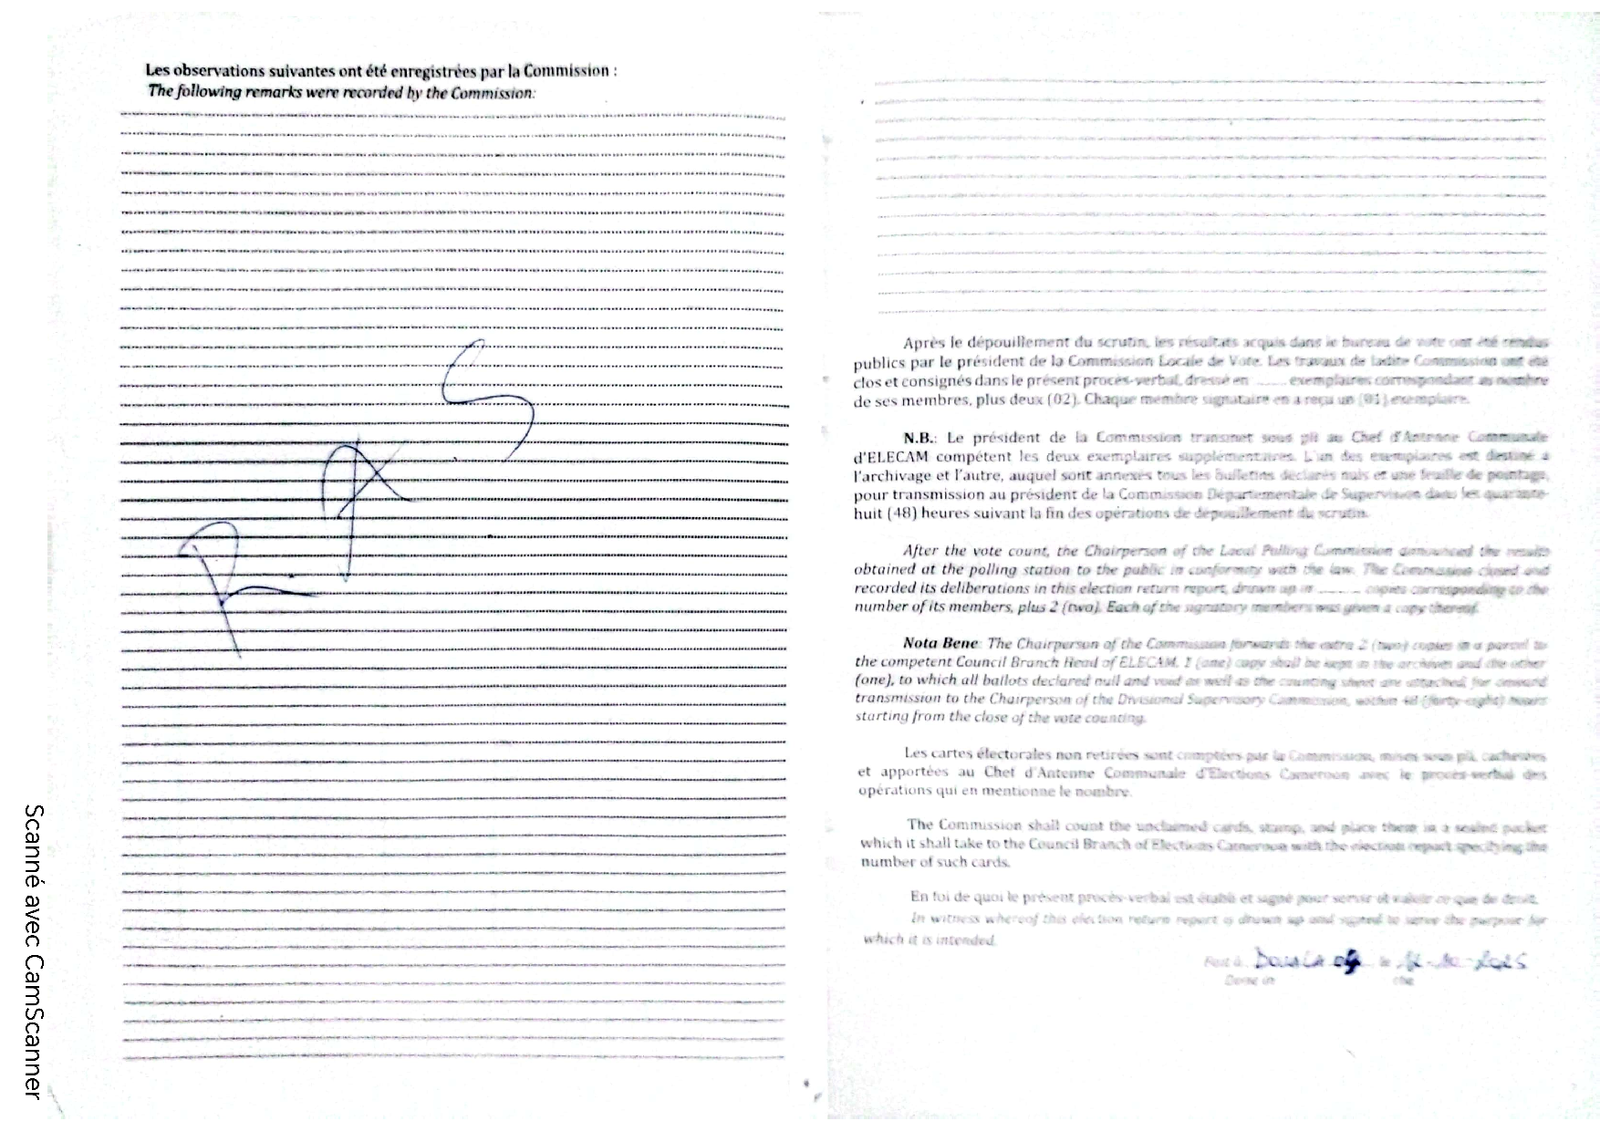 Les observations suivantes ont été enregistrées par la Commission :
The following remarks were recorded by the Commission:
R A S
Après le dépouillement du scrutin, les résultats acquis dans le bureau de vote ont été rendus
publics par le président de la Commission Locale de Vote. Les travaux de ladite Commission ont été
clos et consignés dans le présent procès-verbal, dressé en ........ exemplaires correspondant au nombre
de ses membres, plus deux (02). Chaque membre signataire en a reçu un (01) exemplaire.
N.B.: Le président de la Commission transmet sous pli au Chef d'Antenne Communale
d'ELECAM compétent les deux exemplaires supplémentaires. L'un des exemplaires est destiné à
l'archivage et l'autre, auquel sont annexés tous les bulletins déclarés nuls et une feuille de pointage,
pour transmission au président de la Commission Départementale de Supervision dans les quarante-
huit (48) heures suivant la fin des opérations de dépouillement du scrutin.
After the vote count, the Chairperson of the Local Polling Commission announced the results
obtained at the polling station to the public in conformity with the law. The Commission closed and
recorded its deliberations in this election return report, drawn up in ......... copies corresponding to the
number of its members, plus 2 (two). Each of the signatory members was given a copy thereof.
Nota Bene: The Chairperson of the Commission forwards the extra 2 (two) copies in a parcel to
the competent Council Branch Head of ELECAM. 1 (one) copy shall be kept in the archives and the other
(one), to which all ballots declared null and void as well as the counting sheet are attached, for onward
transmission to the Chairperson of the Divisional Supervisory Commission, within 48 (forty-eight) hours
starting from the close of the vote counting.
Les cartes électorales non retirées sont comptées par la Commission, mises sous pli, cachetées
et apportées au Chef d'Antenne Communale d'Elections Cameroon avec le procès-verbal des
opérations qui en mentionne le nombre.
The Commission shall count the unclaimed cards, stamp, and place them in a sealed packet
which it shall take to the Council Branch of Elections Cameroon with the election report specifying the
number of such cards.
En foi de quoi le présent procès-verbal est établi et signé pour servir et valoir ce que de droit.
In witness whereof this election return report is drawn up and signed to serve the purpose for
which it is intended.
Fait à DOUALA le 2025
Done in the
Scanné avec CamScanner